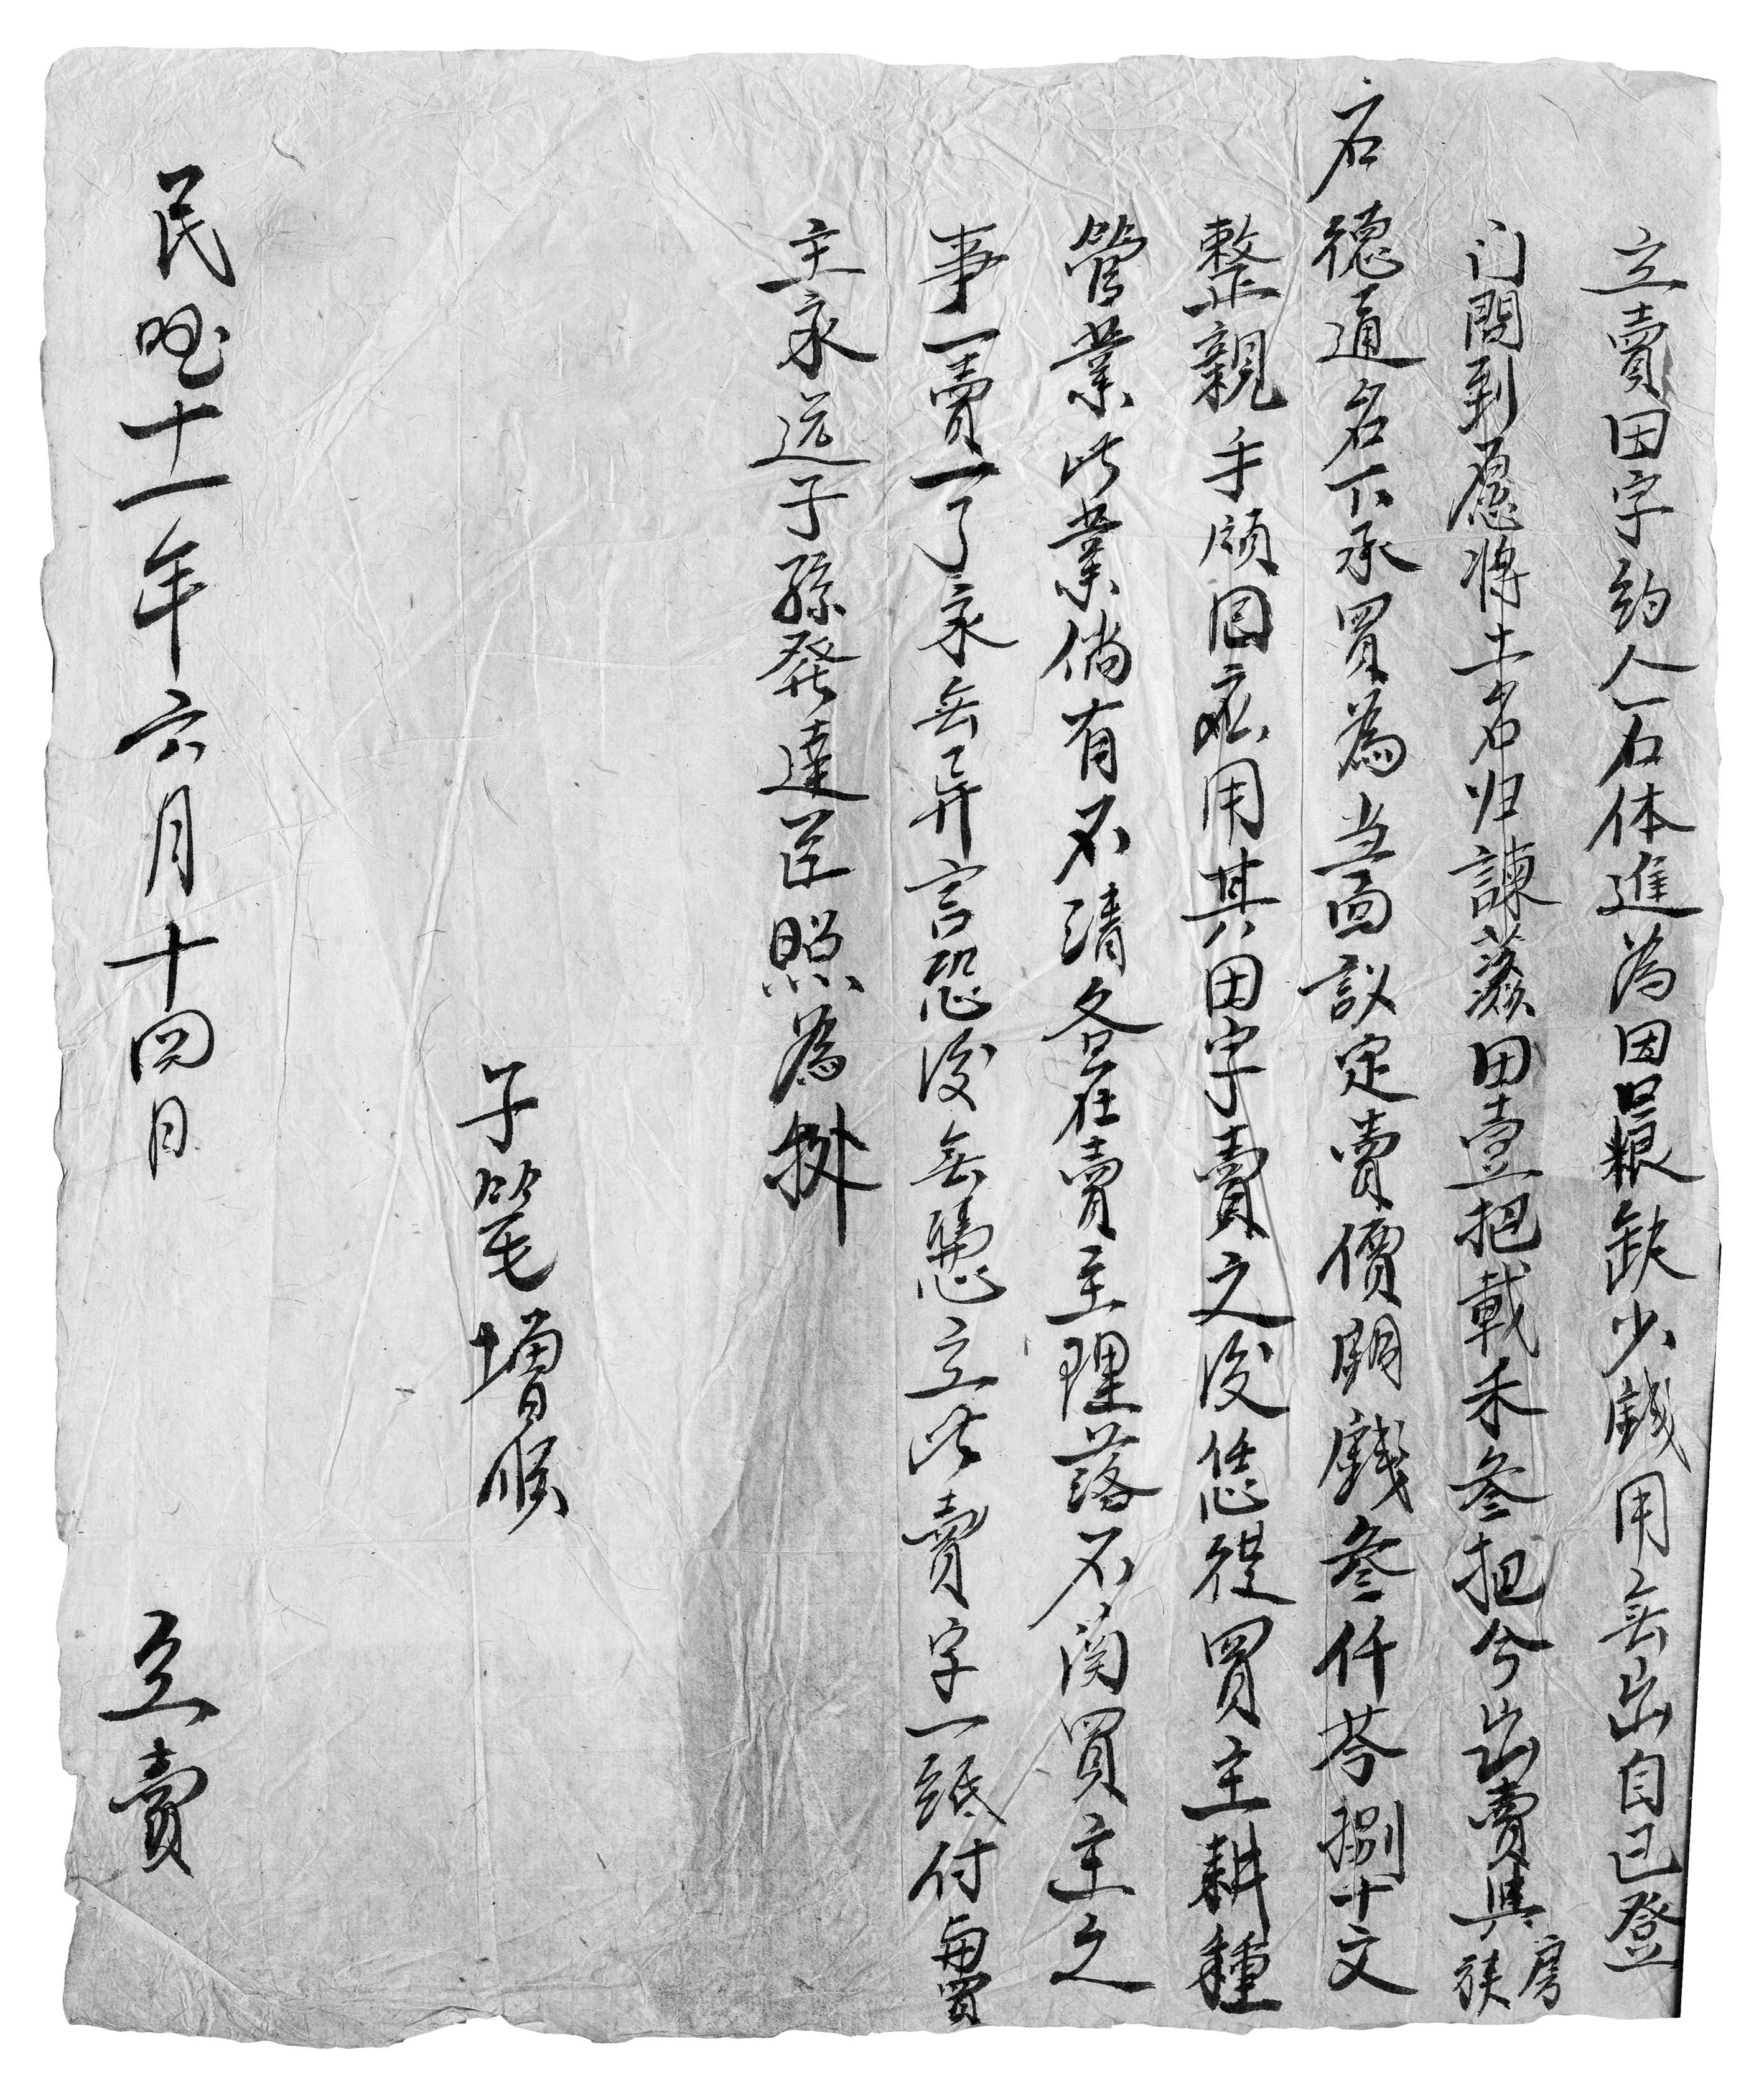 立賣田字約人石体進為因口粮缺少錢用無出自己登
门問到愿将土名归諫田壹把載禾叁把今出賣與房族
石德通名下承買為当面議定賣價銅錢叁仟零捌十文
整親手領回应用其田字賣之後恁從買主耕種
管業此業倘有不清各在賣主理落不関買主之
事一賣一了永無異言恐後無憑立此賣字一紙付與買
主永远子孫發達存照為據
子筆增順
民国十一年六月十四日 立賣